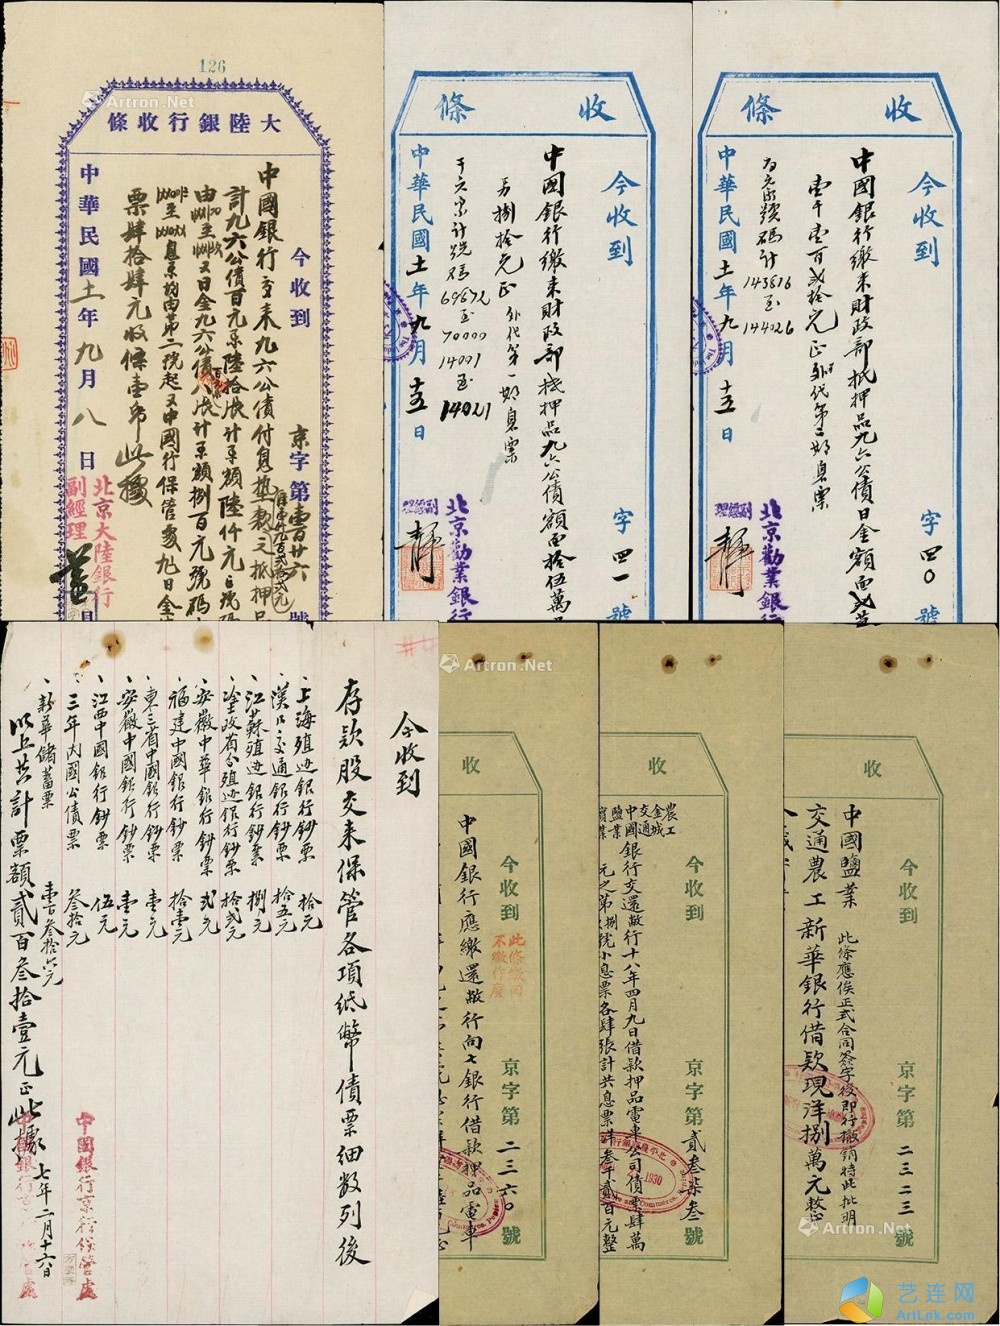 126
大陸銀行收條
今收到
京字第壹百廿六號
中國銀行交来九六公債付息墊款之抵押品
計九六公債百元票陸拾張計票額陸仟元
又日金九六公債八張計票額捌百元號碼
息票均由第二號起又中國行保管處九日金
票肆拾肆元收條壹帋此據
中華民國十一年九月八日
北京大陸銀行
副經理
收條
今收到
字四一號
中國銀行繳来財政部抵押品九六公債額面拾伍萬
捌拾元正 外代第一期息票
計號碼
69872
至
70000
14001
至
14021
中華民國十一年九月十五日
北京勸業銀行
副經理
收條
今收到
字四〇號
中國銀行繳来財政部抵押品九六公債日金額面
壹千壹百貳拾元正 外代第二期息票
號碼計
143876
至
144026
中華民國十一年九月十五日
北京勸業銀行
副經理
今收到
存款股交来保管各項紙幣債票細数列後
、上海殖边銀行鈔票 拾元
、漢口交通銀行鈔票 拾五元
、江蘇殖边銀行鈔票 捌元
殖边銀行鈔票 拾貳元
、安徽中華銀行鈔票 貳元
、福建中國銀行鈔票 拾壹元
、東三省中國銀行鈔票 壹元
、安徽中國銀行鈔票 壹元
、江西中國銀行鈔票 伍元
、三年内國公債票 叁拾元
、新華儲蓄票 壹百叁拾六元
以上共計票額貳百叁拾壹元正此據
七年二月十六日
中國銀行京行保管處
收
今收到
京字第二三六〇號
中國銀行應繳還敝行向七銀行借款押品電車
此條繳同
不繳作廢
收
今收到
京字第貳叁柒叁號
農工
金城
交通
中國
鹽業
銀行交還敝行十八年四月九日借款押品電車公司債票肆萬
元之第捌號小息票各肆張計共息票洋叁千貳百元整
1930
收
今收到
京字第二三二三號
中國鹽業
交通農工新華銀行借款現洋捌萬元整
此條應俟正式合同簽字後即行撤銷特此批明
Artron.Net
Artron.Net
Artron.Net
Artron.Net
Artron.Net
艺连网
ArtLnk.com